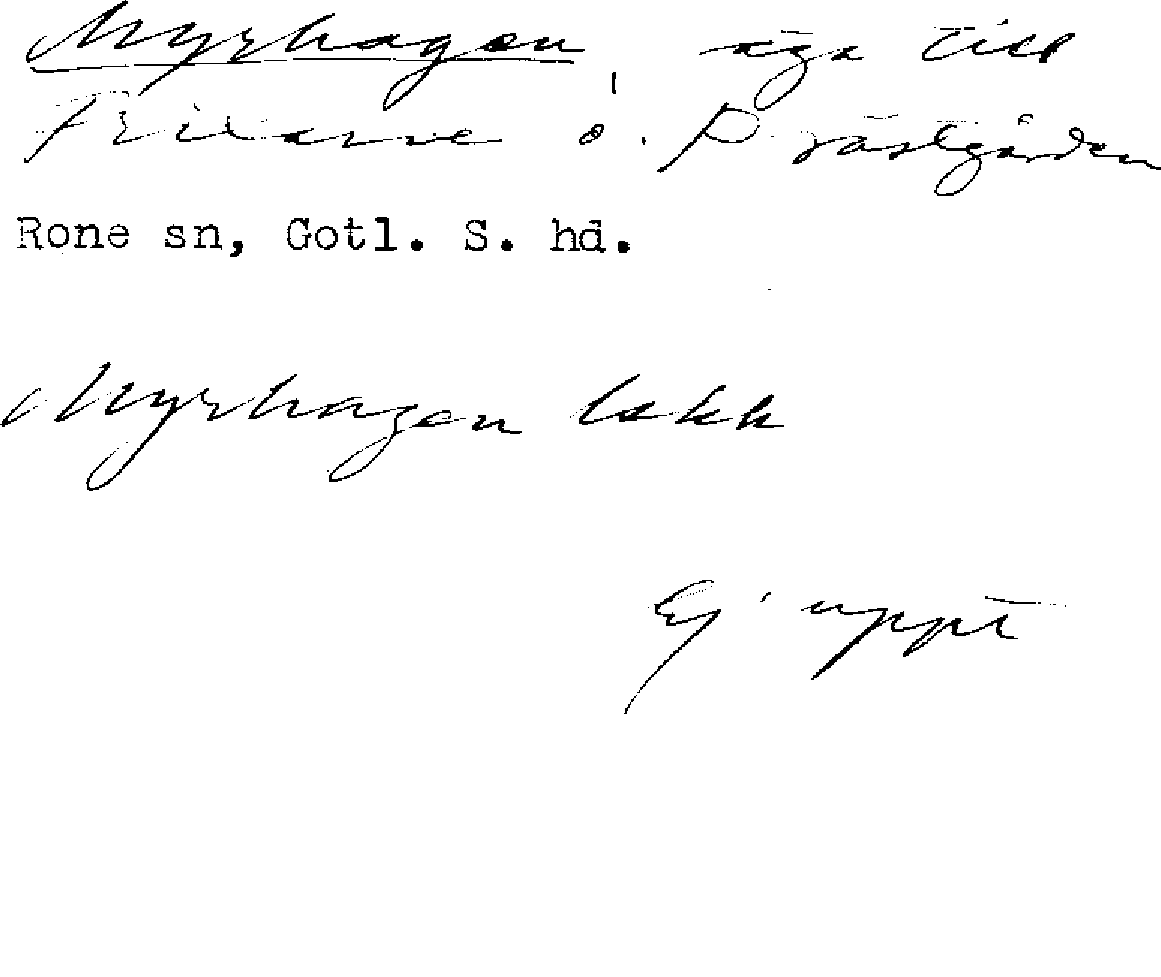 Myrhagen, äga till
Fritarve o. Prästgården
Rone sn, Gotl. S. hd.
Myrhagen Ekk
Ej uppt